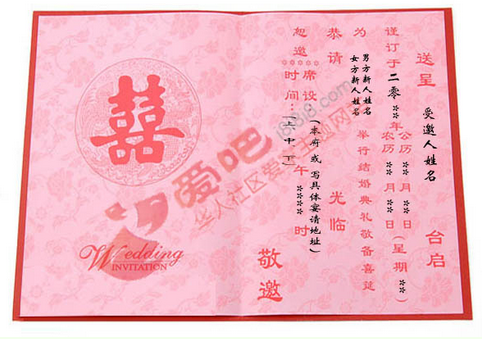 囍
Wedding
INVITATION
送呈 受邀人姓名 台启
谨订于二零**年公历**月**日(星期**)
农历**月**日
为男方新人姓名 举行结婚典礼敬备喜筵
女方新人姓名
恭请 光临
恕邀 敬邀
席设:(本府或写具体宴请地址)
时间:(上中下)午**时
爱吧
i8i8i8.com
华人社区